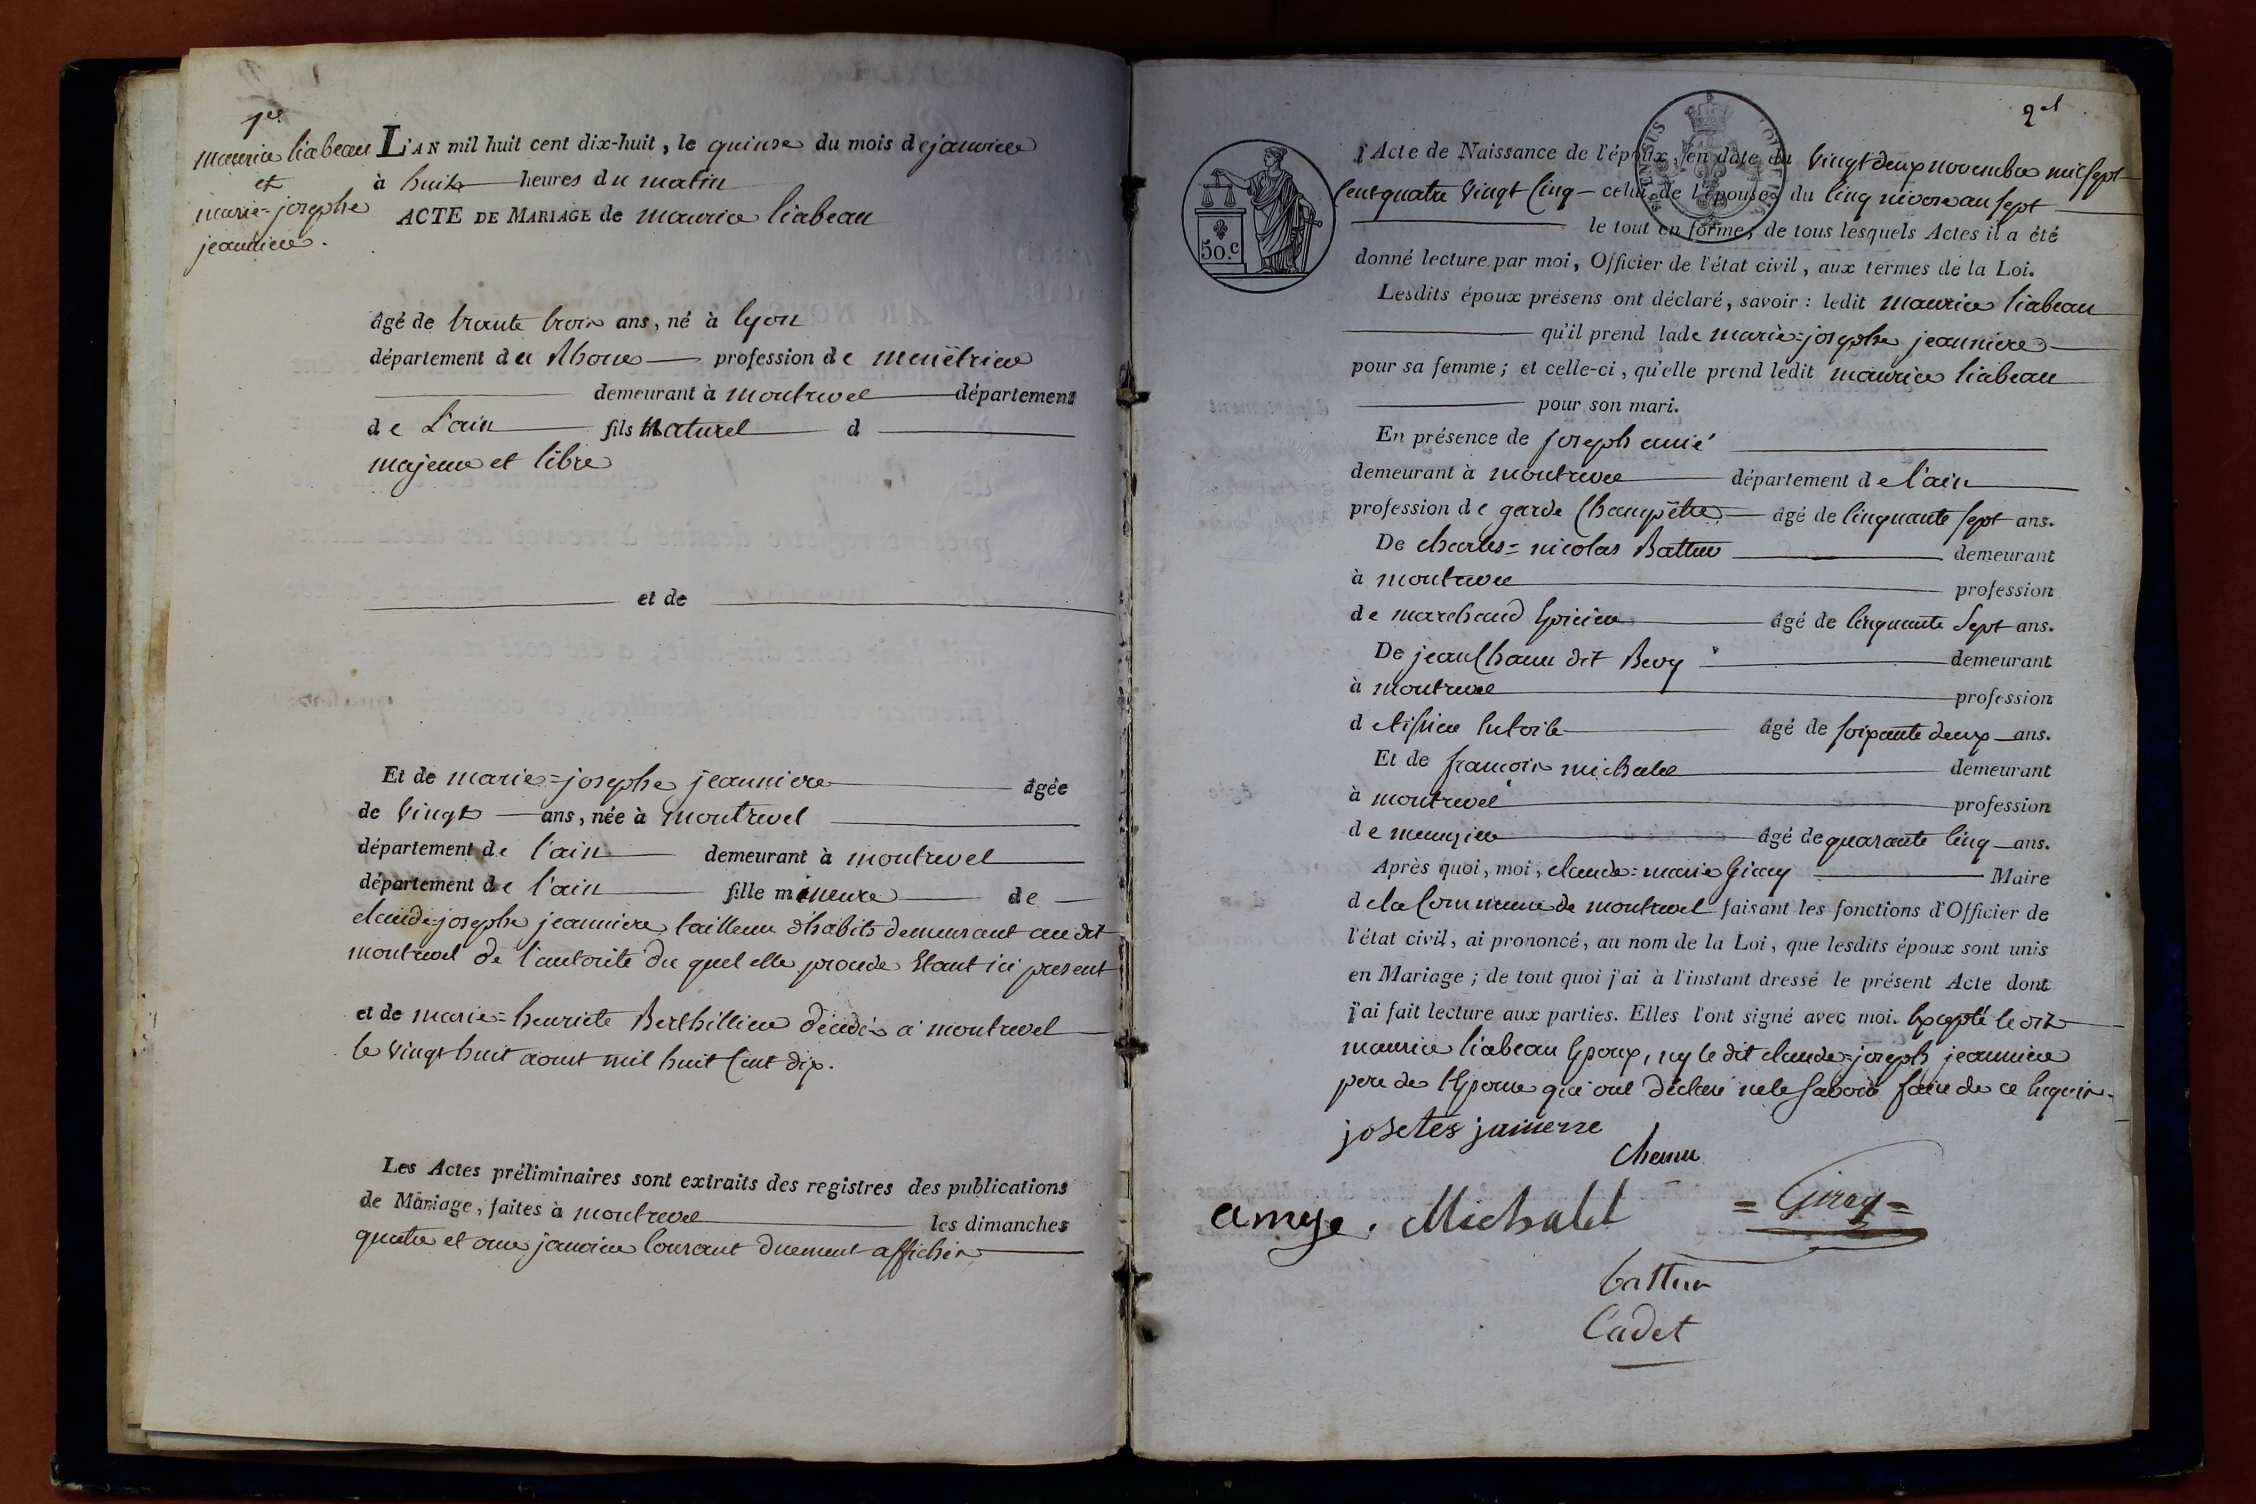 1er
maurice liabeau
et
marie=josephe
jeanniere.
L'AN mil huit cent dix-huit, le quinse du mois de janvier
à huit heures du matin
ACTE DE MARIAGE de maurice liabeau
âgé de trante trois ans, né à lyon
département du Rhone profession de menêtrier
demeurant à montrevel département
de L'ain fils Naturel d
majeur et libre
et de
Et de marie=josephe jeanniere âgée
de Vingt ans, née à montrevel
département de l'ain demeurant à montrevel
département de l'ain fille mineure de
claude=josephe jeanniere tailleur d'habits demeurant au dit
montrevel de l'autorité du quel elle procede Etant ici present
et de marie=henriete Berthillier décédée à montrevel
le Vingt huit aout mil huit Cent dix.
Les Actes préliminaires sont extraits des registres des publications
de Mariage, faites à montrevel les dimanches
quatre et onze janvier Courant duement affichés
2el
50.C
l'Acte de Naissance de l'époux, en date du Vingt deux novembre mil sept
Cent quatre Vingt Cinq celui de l'épouse, du Cinq nivose an sept
le tout en forme; de tous lesquels Actes il a été
donné lecture par moi, Officier de l'état civil, aux termes de la Loi.
Lesdits époux présens ont déclaré, savoir: ledit maurice liabeau
qu'il prend lade marie=josephe jeanniere
pour sa femme; et celle-ci, qu'elle prend ledit maurice liabeau
pour son mari.
En présence de joseph amié
demeurant à montrevel département de l'ain
profession de garde Champêtre âgé de Cinquante sept ans.
De charles=nicolas Battur demeurant
à montrevel profession
de marchand Epicier âgé de Cinquante Sept ans.
De jean Chanu dit Bevy demeurant
à montrevel profession
de tissier en toile âgé de soixante deux ans.
Et de francois michalet demeurant
à montrevel profession
de menusier âgé de quarante Cinq ans.
Après quoi, moi, claude=marie Giray Maire
de la Commune de montrevel faisant les fonctions d'Officier de
l'état civil, ai prononcé, au nom de la Loi, que lesdits époux sont unis
en Mariage; de tout quoi j'ai à l'instant dressé le présent Acte dont
j'ai fait lecture aux parties. Elles l'ont signé avec moi. Excepté le dit
maurice liabeau Epoux, ny le dit claude=joseph jeanniere
pere de l'Epouse qui ont déclaré ne le savoir faire de ce enquis.
josetes jainerre
chanu
amye. Michalet =Giray=
battur
Cadet